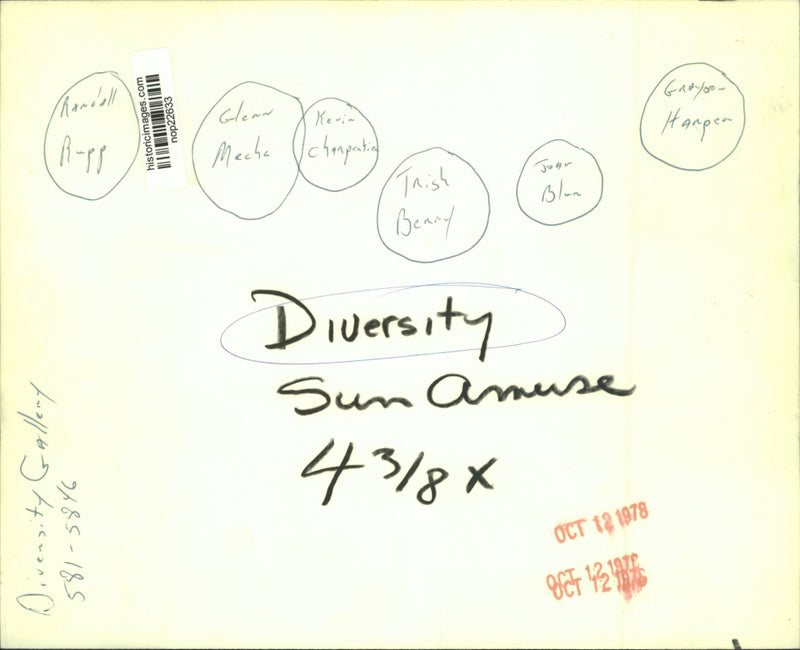 Randall
Rupp
historicimages.com
nop22633
Glenn
Meche
Kevin
Charpentier
Trish
Berry
Joan
Blum
Grayson
Harper
Diversity
Sun Amuse
4 3/8 x
Diversity Gallery
581-5846
OCT 12 1978
OCT 12 1978
OCT 12 1978